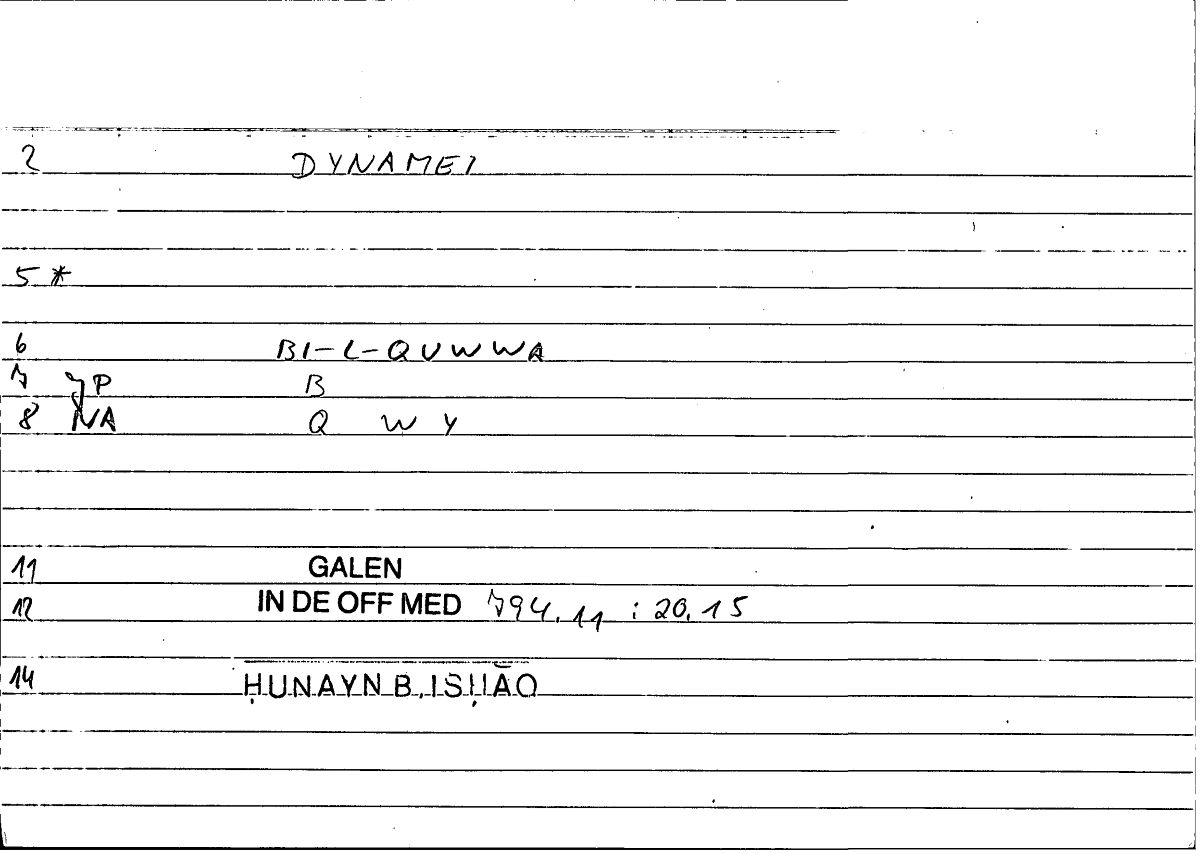 2 DYNAMEI
5 *
6 BI-L-QUWWA
7 JP B
8 NA Q W Y
11 GALEN
12 IN DE OFF MED 794.11 : 20.15
14 ḤUNAYN B. ISḤĀQ